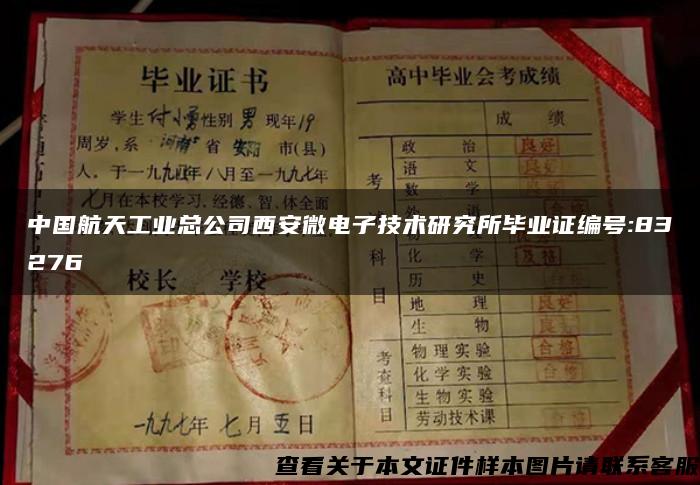 毕业证书
学生付小勇性别男现年19
周岁,系河南省安阳市(县)
人,于一九九四年八月至一九九七年
七月在本校学习,经德、智、体全面
校长 学校
一九九七年七月五日
高中毕业会考成绩
成 绩
考
科
目
政 治 良好
语 文 良好
数 学
化 学 及格
历 史
地 理 良好
生 物 良好
考
查
科
目
物理实验 合格
化学实验 合格
生物实验
劳动技术课 合格
中国航天工业总公司西安微电子技术研究所毕业证编号:83
276
查看关于本文证件样本图片请联系客服